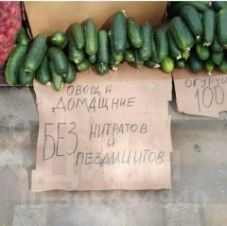 ОВОЩИ
ДОМАЩНИЕ
БЕЗ НИТРАТОВ
И
ПЕЗДИЦИТОВ
ОГУРЦЫ
100